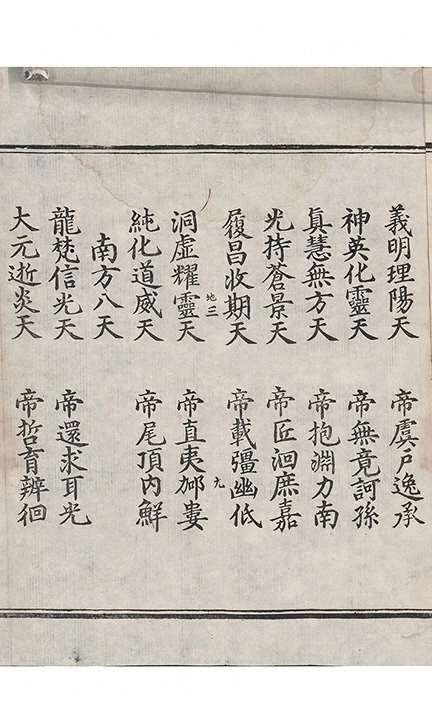 義明理陽天　帝虞戸逸承
神英化靈天　帝無竟訶孫
眞慧無方天　帝抱淵力南
光持蒼景天　帝匠洄庶嘉
履昌收期天　帝載彊幽低
地三　九
洞虛耀靈天　帝直夷邲婁
純化道威天　帝尾頂内鮮
南方八天
龍梵信光天　帝還求耳光
大元逝炎天　帝哲育辨徊